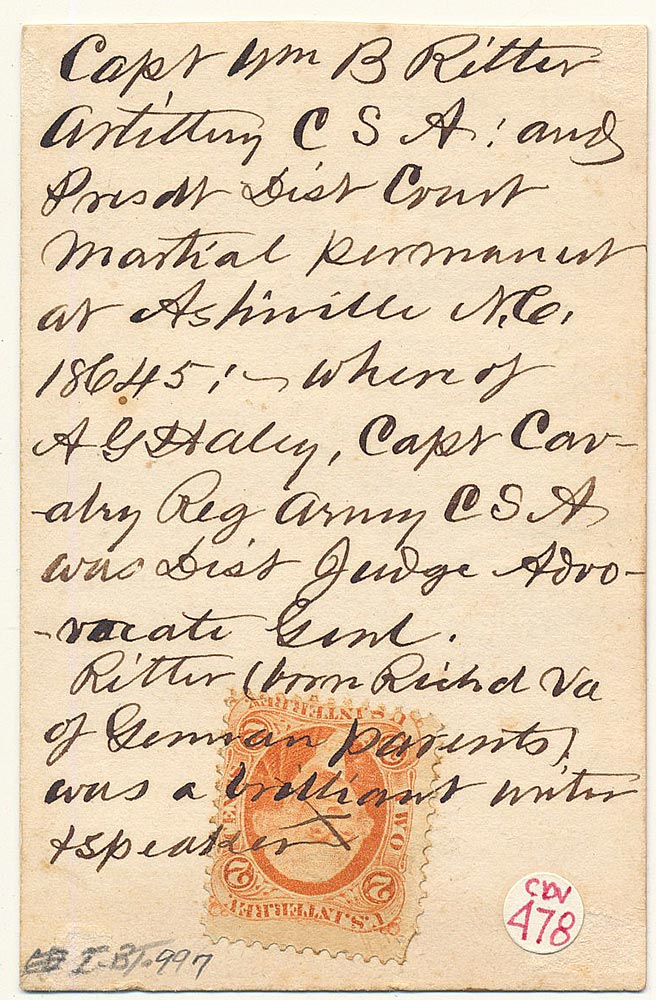 Capt Wm B Ritter
Artillery C S A; and
Presdt Dist Court
Martial permanent
at Ashville N.C.
18645; – where of
A G Haley, Capt Cav-
-alry Reg Army C S A
was Dist Judge Advo-
-vocate Genl.
Ritter (born Richd Va
of German parents)
was a brilliant writer
& speaker
U.S. INTER. REV.
2 2
TWO CENTS
2 2
U.S. INTER. REV.
CDV
478
I-BT-997